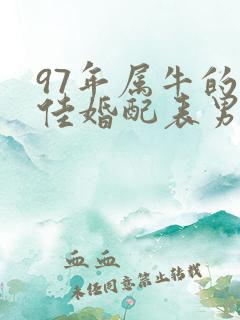 97年属牛的
佳婚配表男
血血
未经同意禁止转载